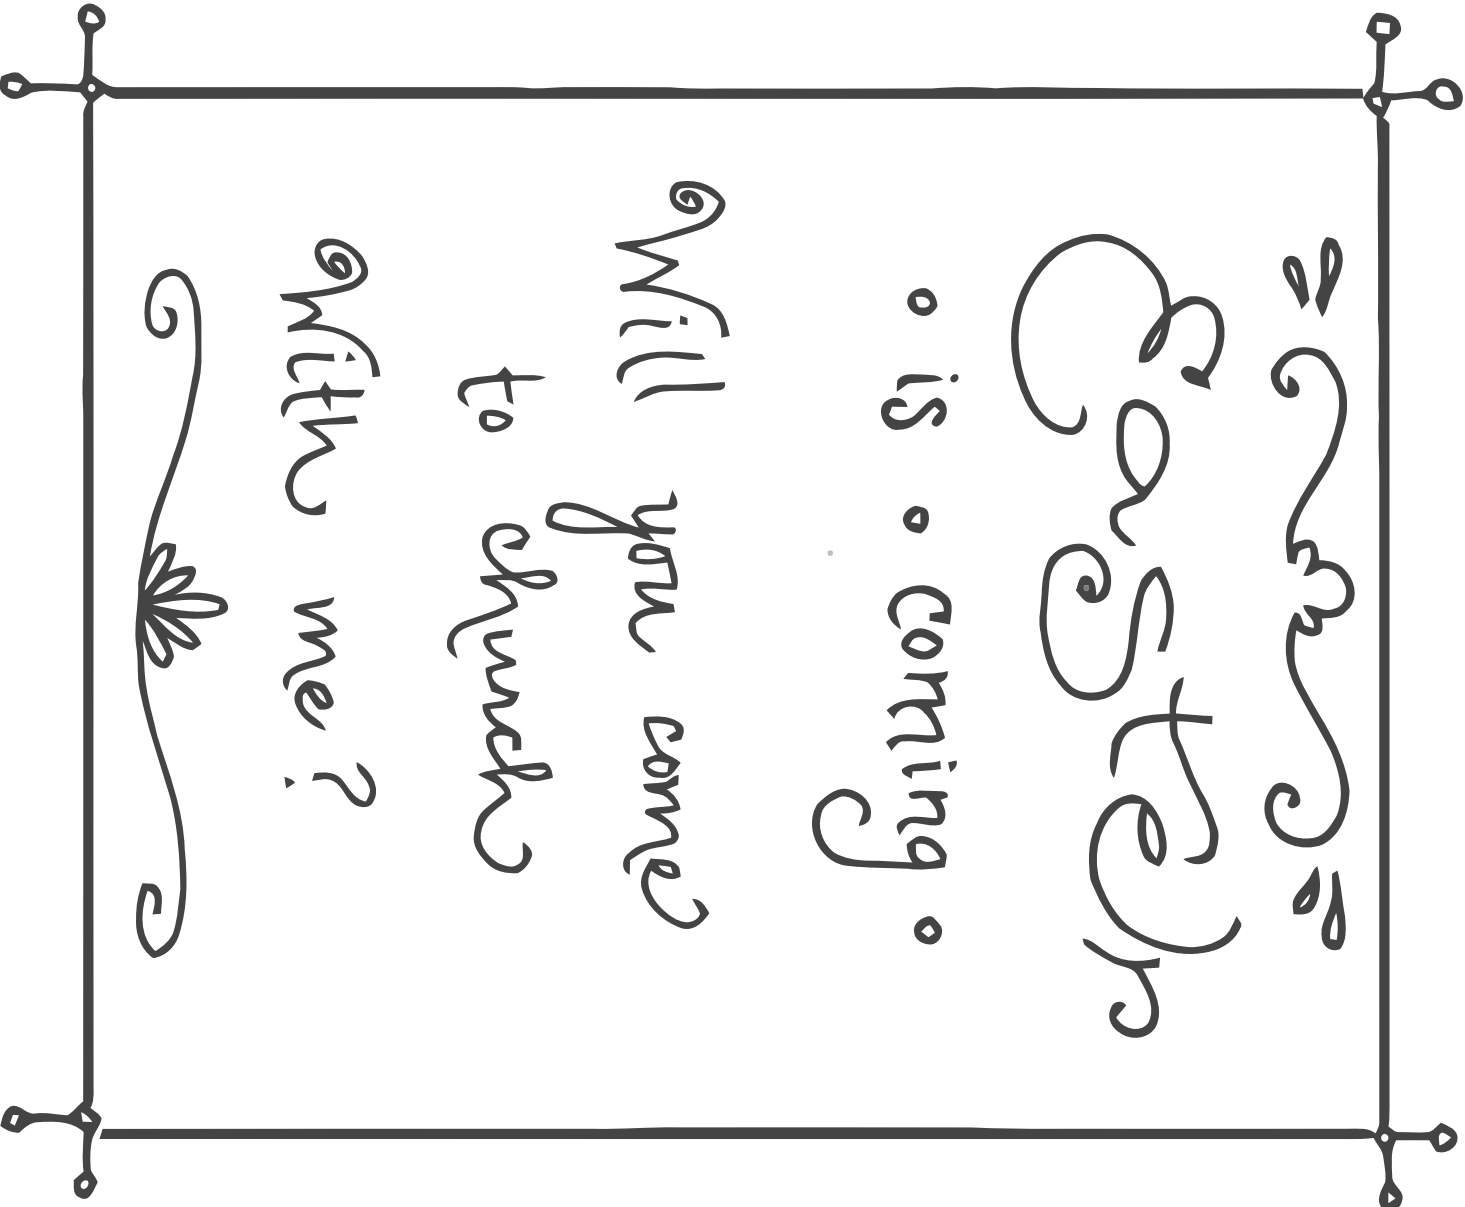 Easter
• is • coming •
Will you come
to church
with me?